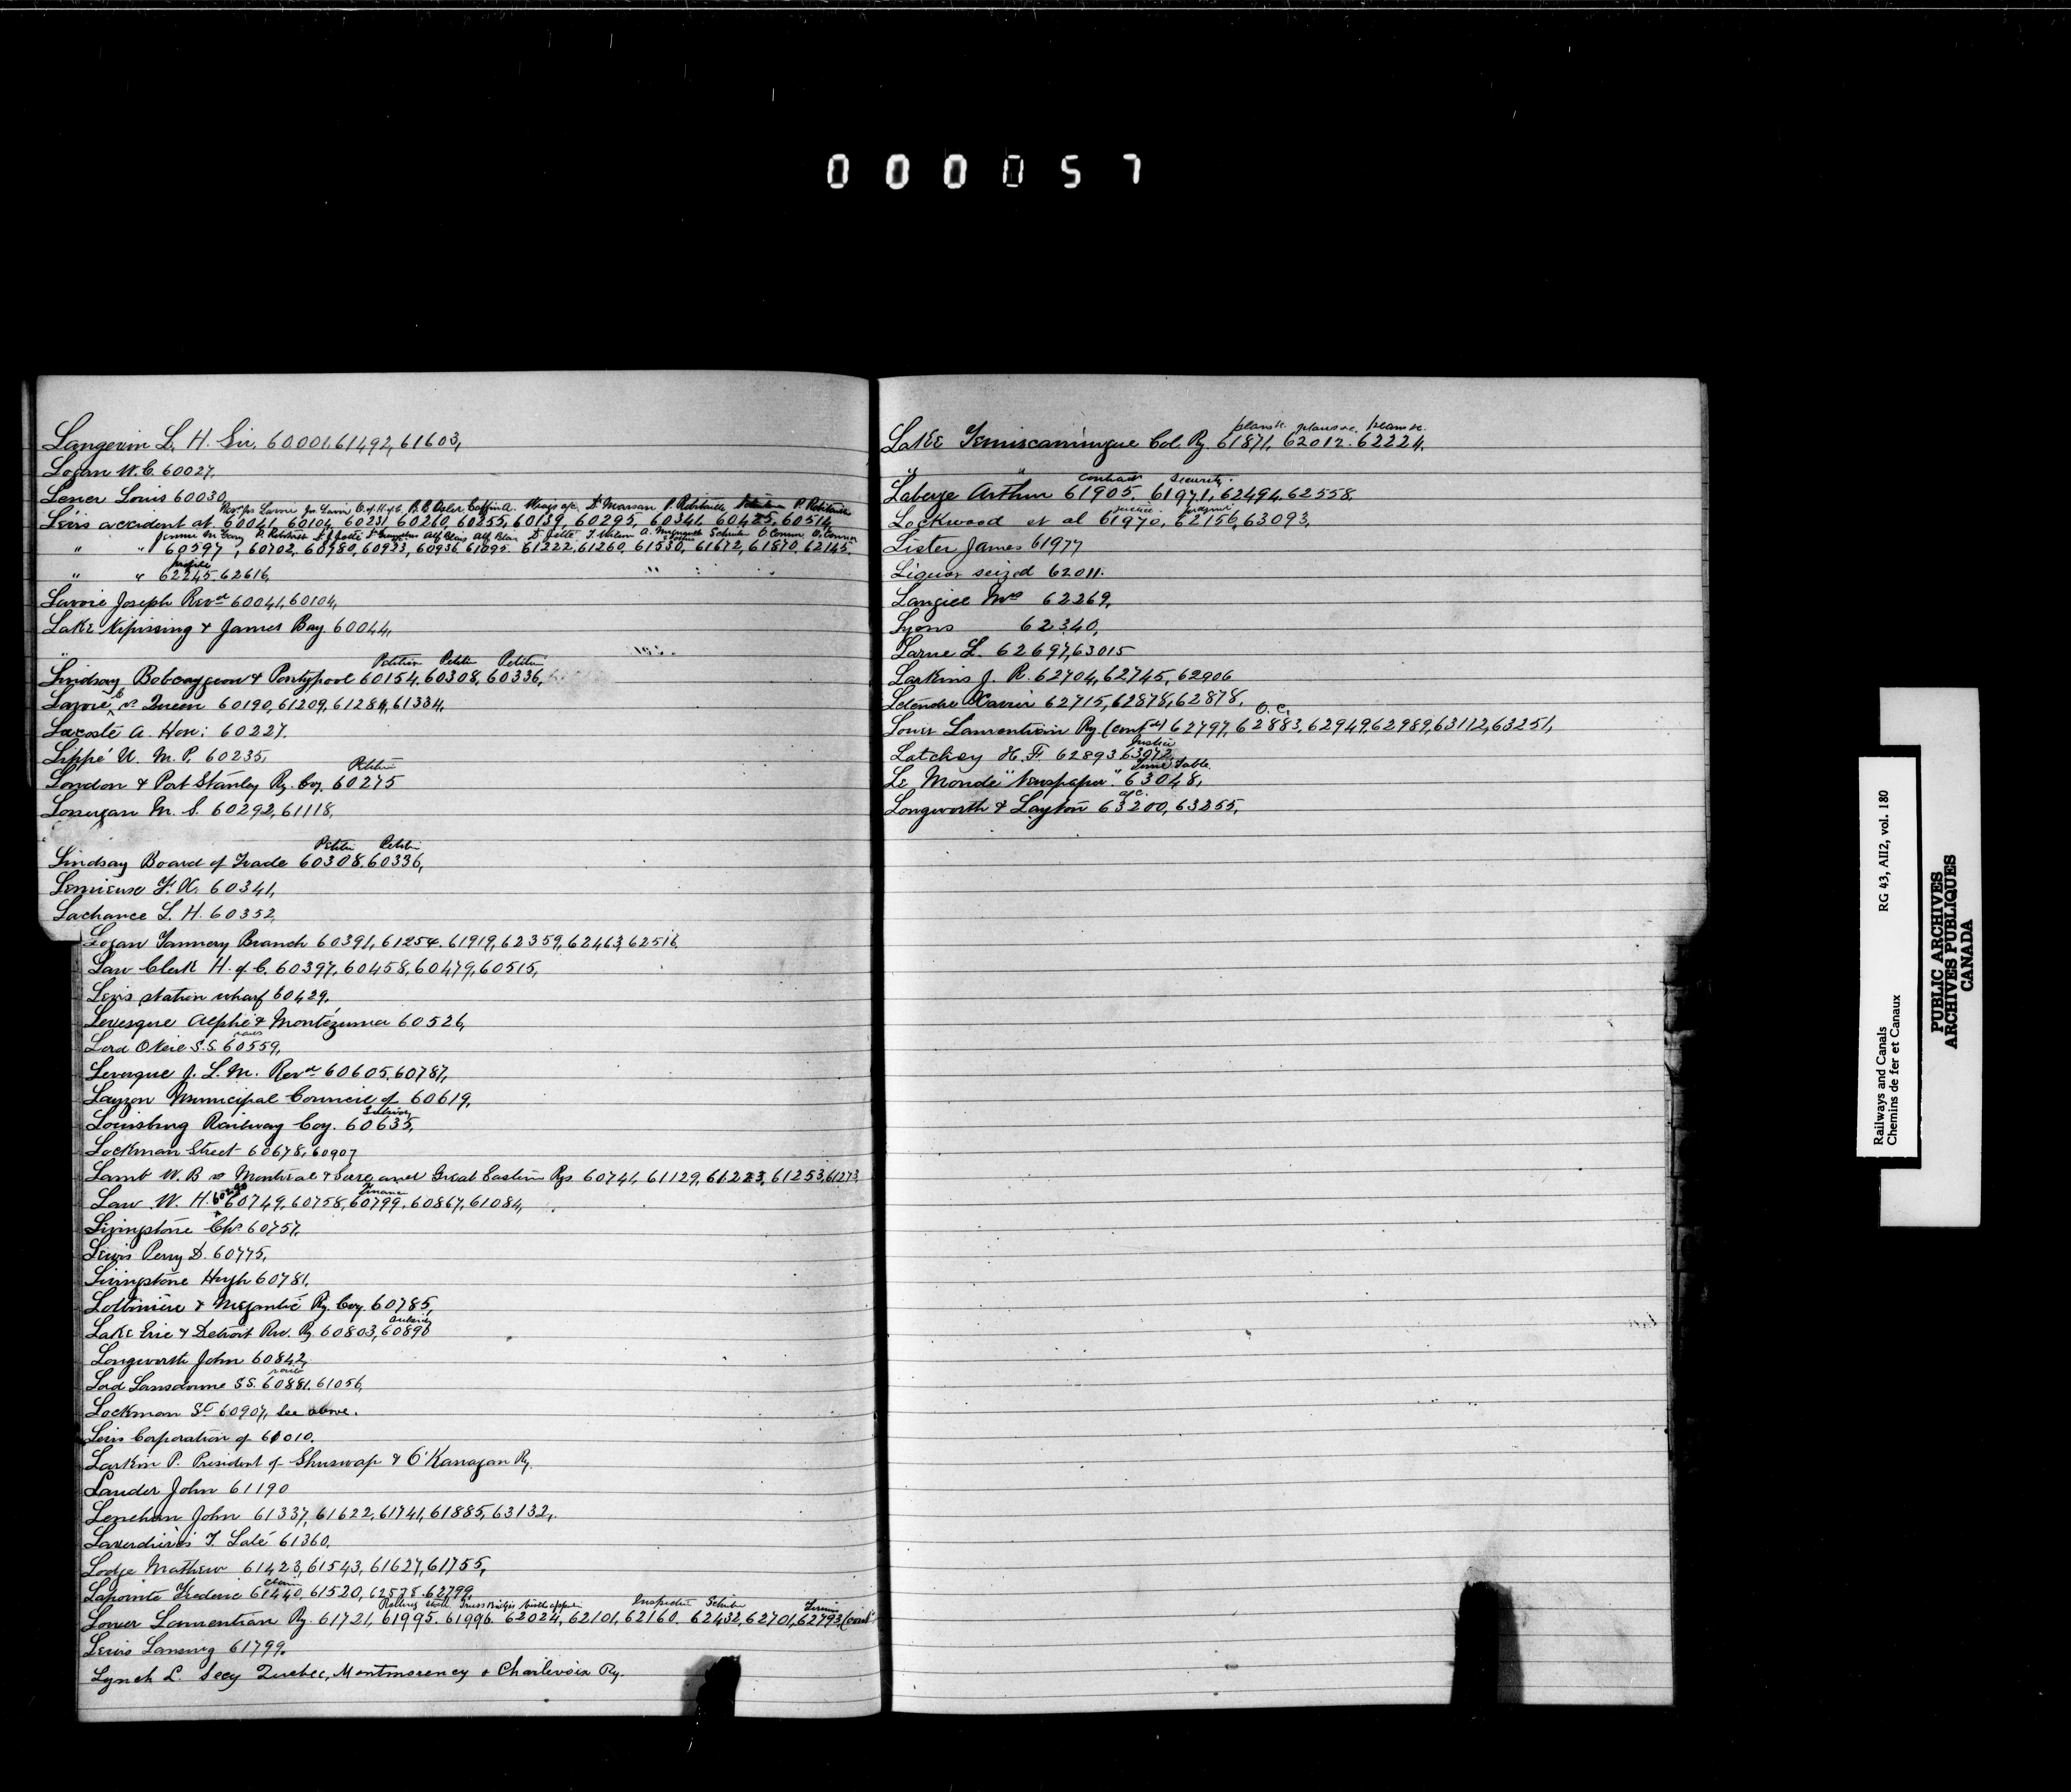 000057
Langevin L. H. Sir. 60001.61492,61603,
Logan W. C. 60027.
Lesser Louis 60030,
Revd Jos Lavoie Jos Lavoie C. of H of C. B. B. Osler Coffin &c. D. Morison P. Robitaille Schreiber P. Robitaille
Lévis accident at. 60041, 60104, 60231, 60260, 60255, 60139, 60295, 60341, 60425, 60514,
" " 60597, 60702, 60780, 60923, 60936 61095. 61222, 61260, 61530, 61672, 61870, 62145.
" " 62245. 62616,
Lavoie Joseph Revd 60041, 60104,
Lake Nipissing & James Bay 60044,
Petition Petition Petition
Lindsay Bobcaygeon & Pontypool 60154, 60308, 60336,
Lavoie vs Queen 60190, 61209, 61284, 61334,
Lacoste A. Hon: 60227.
Lippé U. M. P. 60235,
Petition
London & Port Stanley Ry. Coy. 60275
Lonergan M. S. 60292, 61118,
Petition Petition
Lindsay Board of Trade 60308. 60336,
Lemieux F. X. 60341,
Lachance L. H. 60352,
Logan Tannery Branch 60391, 61254. 61919, 62359, 62463, 62516,
Law Clerk H. of C. 60397, 60458, 60479, 60515,
Levis station wharf 60429.
Levesque Alphé & Montézuma 60526,
Lord O'Neil S.S. 60559,
Levesque J. L. M. Revd 60605, 60787,
Lauzon Municipal Council of 60619,
Subsidy
Louisburg Railway Coy. 60635,
Lockman Street 60678, 60907
Lamb W. B vs Montreal & Sorel and Great Eastern Rys. 60741, 61129, 61223, 61253, 61273,
Finance
Law W. H. 60749, 60758, 60799, 60867, 61084,
Livingstone Chs. 60757,
Lewis Perry D. 60775,
Livingstone Hugh 60781.
Lotbinière & Megantic Ry. Coy. 60785,
Subsidy
Lake Erie & Detroit Riv. Ry. 60803, 60890
Longworth John 60842,
Lord Lansdowne SS. 60881. 61056,
Lockman St 60907, see above.
Levis Corporation of 61010.
Larkin P. President of Shuswap & O'Kanagan Ry.
Lauder John 61190
Lenehan John 61337, 61622, 61741, 61885, 63132,
Laverdière's T. Salé 61360,
Lodge Mathew 61423, 61543, 61627, 61755,
Claim
Lapointe Frederic 61440, 61520, 62578. 62799,
Rolling stock Truss Bridges Inspection Schreiber
Lower Laurentian Ry. 61721, 61995. 61996. 62024, 62101, 62160. 62432, 62701, 62793 (cont
Lewis Lansing 61799.
Lynch L. Secy Quebec, Montmorency & Charlevoix Ry.
plans &c. plans &c. plans &c.
Lake Temiscamingue Col. Ry. 61871, 62012. 62224.
" "
contract security.
Laberge Arthur 61905. 61971, 62494. 62558,
Justice. Judgmt
Lockwood et al 61970, 62156, 63093,
Lister James 61977
Liquor seized 62011.
Langill Mrs 62269,
Lyons 62340,
Larue L. 62697, 63015
Larkins J. R. 62704, 62745, 62906
Letendre Xavier 62715, 62878, 62878,
O. C.
Lower Laurentian Ry (contd) 62797, 62883, 62949, 62989, 63112, 63251,
Justice
Latchey H. F. 62893 63072,
Time Table.
Le Monde "Newspaper" 63048,
a/c.
Longworth & Layton 63200, 63255,
Railways and Canals RG 43, AII2, vol. 180
Chemins de fer et Canaux
PUBLIC ARCHIVES
ARCHIVES PUBLIQUES
CANADA